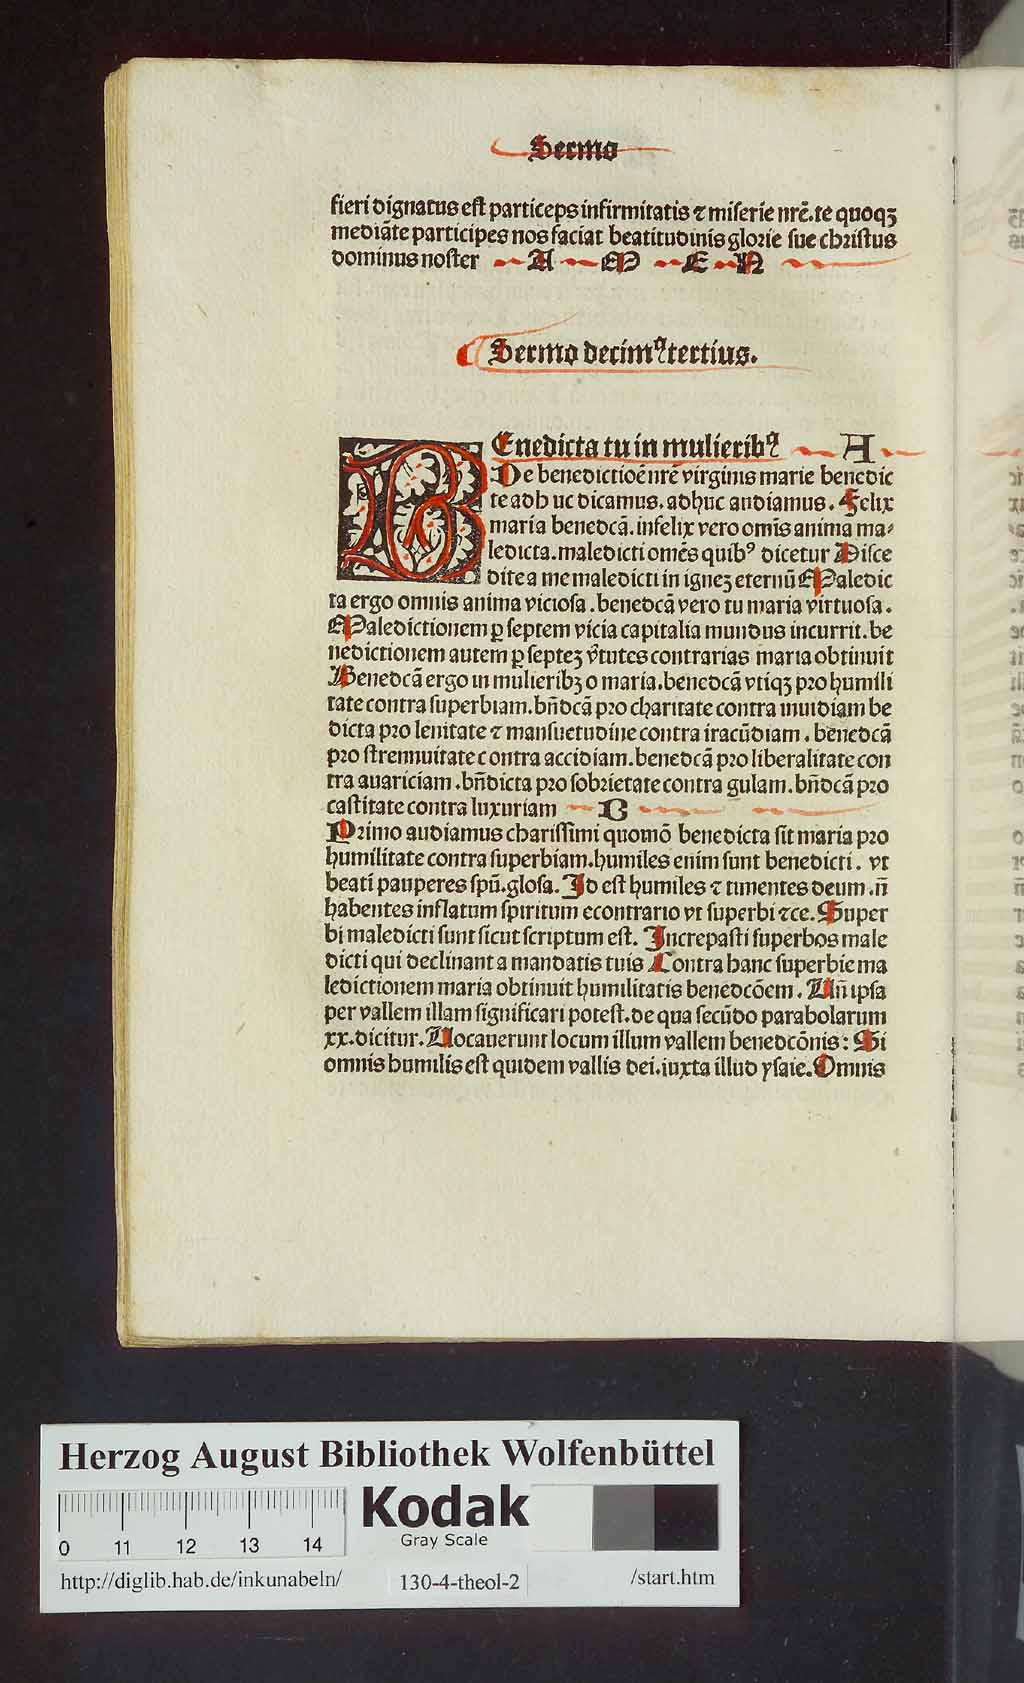 Sermo
fieri dignatus est particeps infirmitatis ⁊ miserie nr̄e. te quoqꝫ
mediāte participes nos faciat beatitudinis glorie sue christus
dominus noster A M E N
Sermo decimꝰ tertius.
BEnedicta tu in mulieribꝰ A
De benedictiōe nr̄e virginis marie benedic
te adhuc dicamus. adhuc audiamus. Felix
maria benedcā. infelix vero om̄is anima ma⸗
ledicta. maledicti omēs quibꝰ dicetur Disce
dite a me maledicti in ignez eternū Maledic
ta ergo omnis anima viciosa. benedcā vero tu maria virtuosa.
Maledictionem ꝑ septem vicia capitalia mundus incurrit. be
nedictionem autem ꝑ septeꝫ v̄tutes contrarias maria obtinuit
Benedcā ergo in mulieribꝫ o maria. benedcā vtiqꝫ pro humili
tate contra superbiam. bn̄dcā pro charitate contra inuidiam be
dicta pro lenitate ⁊ mansuetudine contra iracūdiam. benedcā
pro strennuitate contra accidiam. benedcā pro liberalitate con
tra auariciam. bn̄dicta pro sobrietate contra gulam. bn̄dcā pro
castitate contra luxuriam B
Primo audiamus charissimi quomō benedicta sit maria pro
humilitate contra superbiam. humiles enim sunt benedicti. vt
beati pauperes spū. glosa. Id est humiles ⁊ timentes deum. n̄
habentes inflatum spiritum econtrario vt superbi ⁊ce. Super
bi maledicti sunt sicut scriptum est. Increpasti superbos male
dicti qui declinant a mandatis tuis Contra hanc superbie ma
ledictionem maria obtinuit humilitatis benedcōem. Un̄ ipsa
per vallem illam significari potest. de qua secūdo parabolarum
xx. dicitur. Uocauerunt locum illum vallem benedcōnis: Si
omnis humilis est quidem vallis dei. iuxta illud ysaie. Omnis
Herzog August Bibliothek Wolfenbüttel
Kodak
Gray Scale
0 11 12 13 14
http://diglib.hab.de/inkunabeln/ 130-4-theol-2 /start.htm